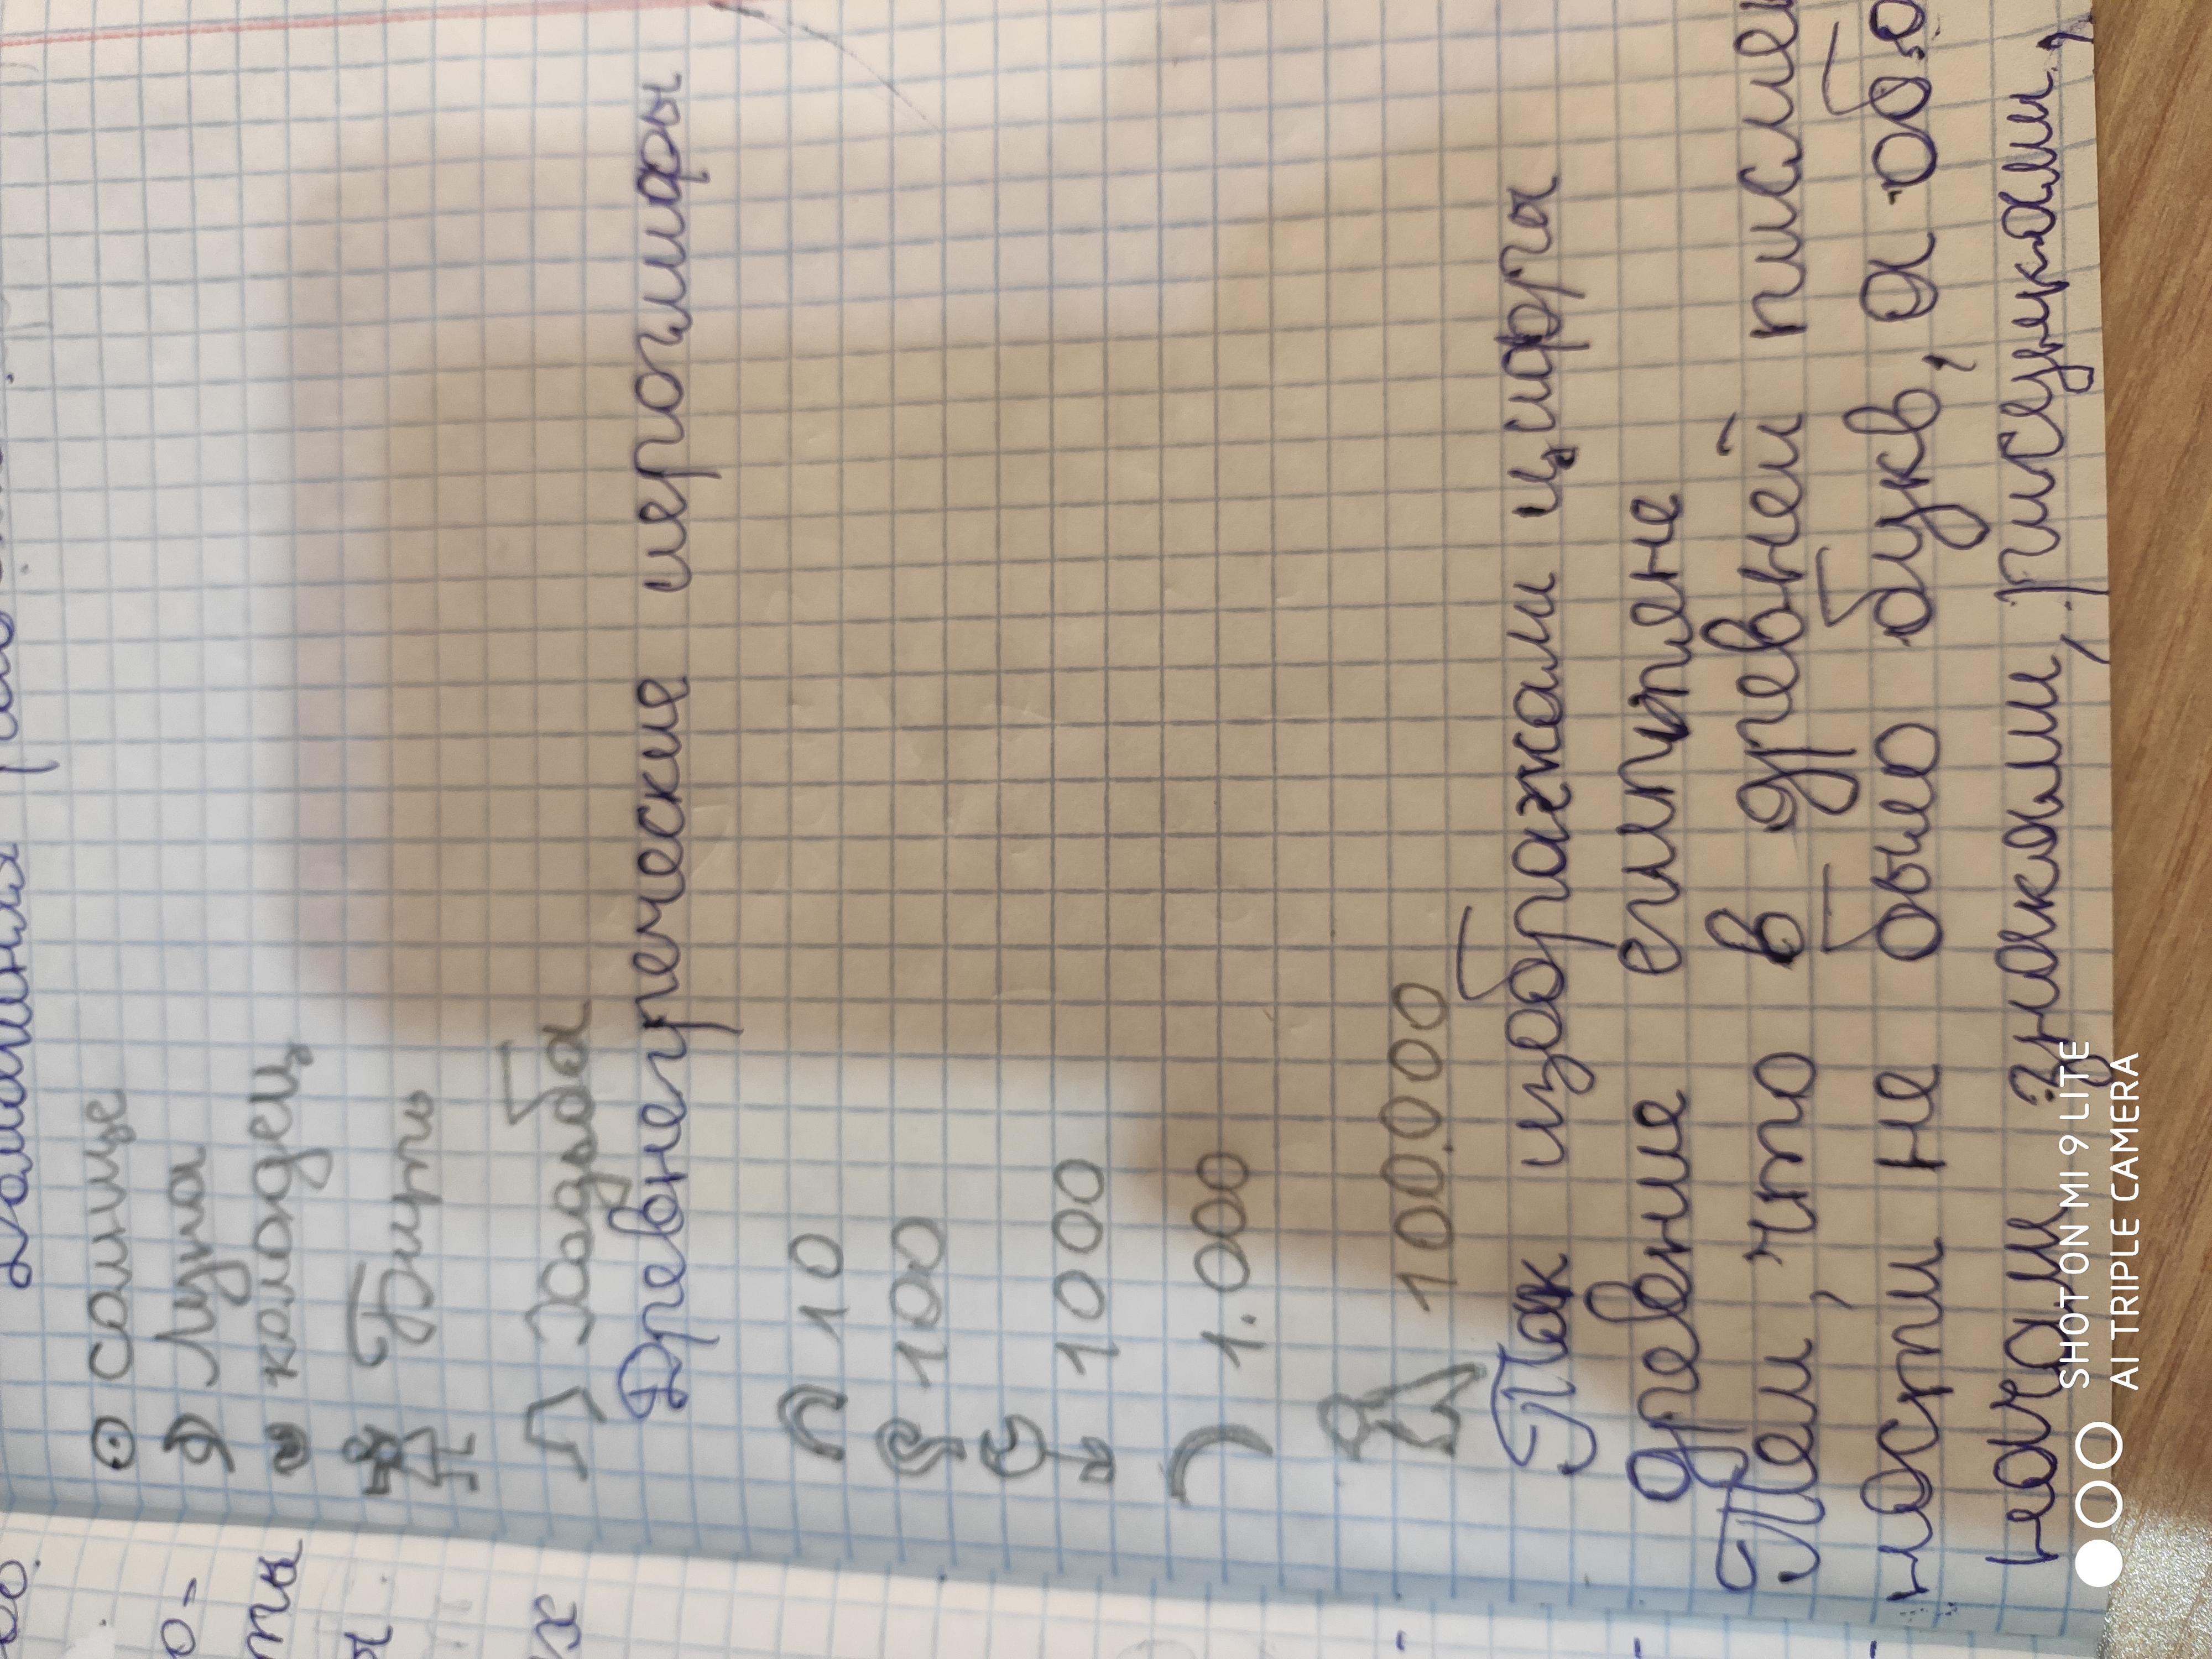 Домашняя
солнце
Луна
колодец
Бить
Хадьба
Древнегреческие иероглифы
10
100
1000
1.000
100.000
Так изображали цифры
древние египтяне
Тем, что в древней письме
ности не было букв, а обоз
начали знаками, рисунками,
SHOT ON MI 9 LITE
AI TRIPLE CAMERA